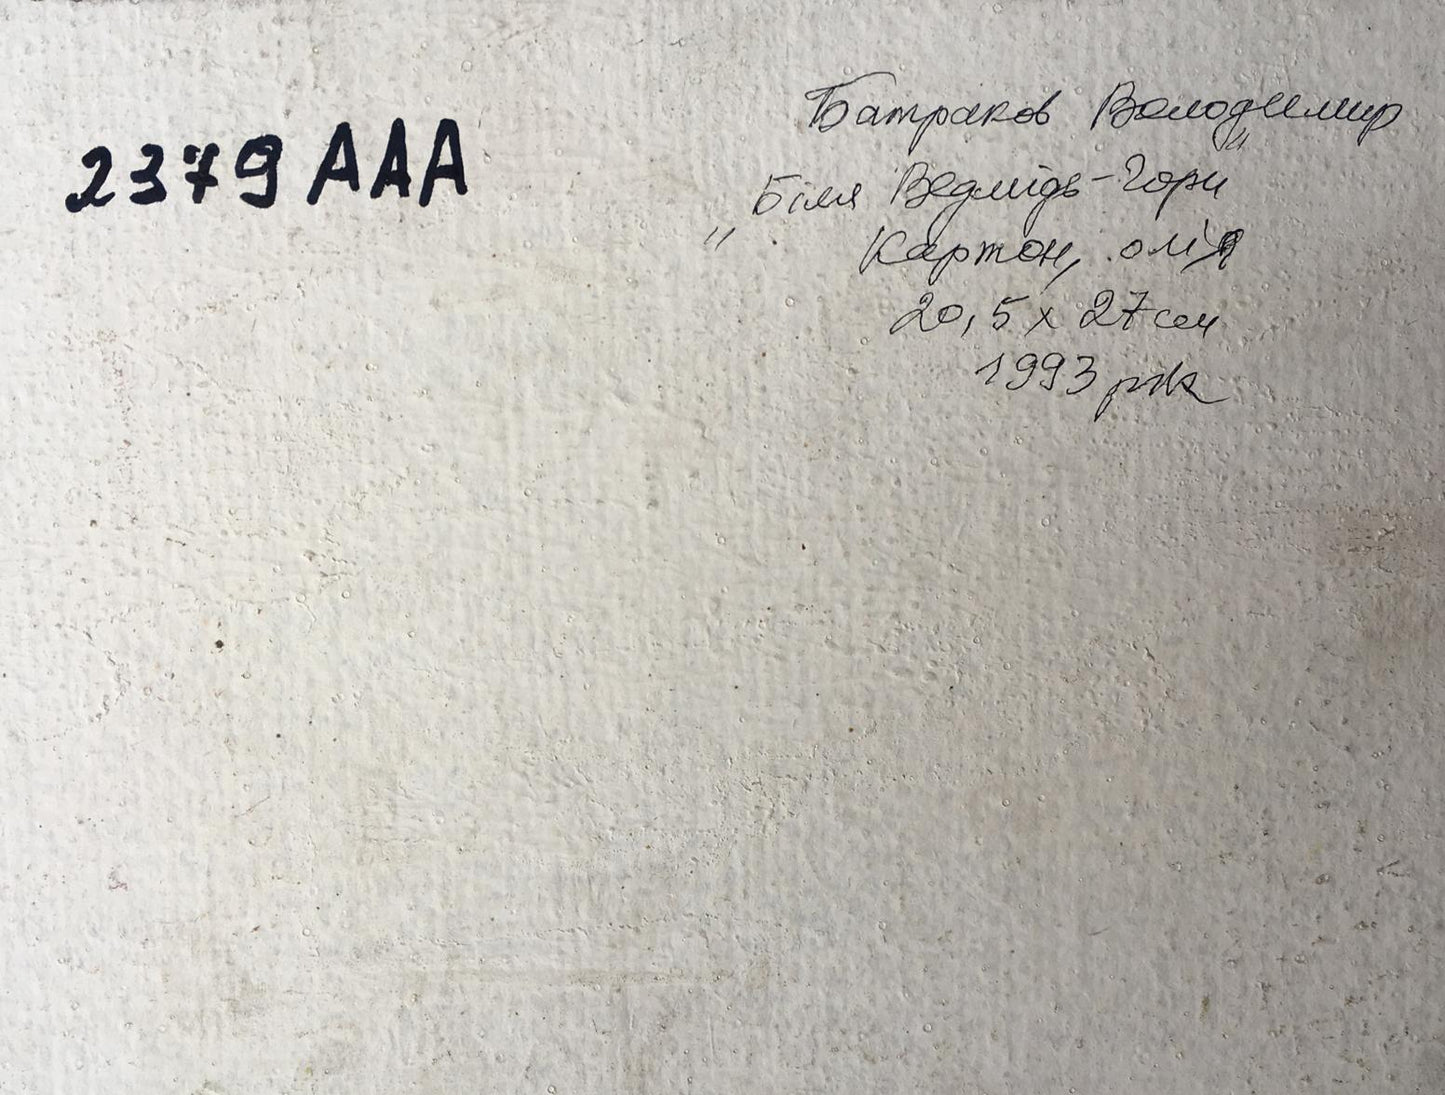 2379 ААА
Батраков Володимир
„Біля Ведмідь-Гори"
Картон, олія
20,5 х 27 см
1993 рік